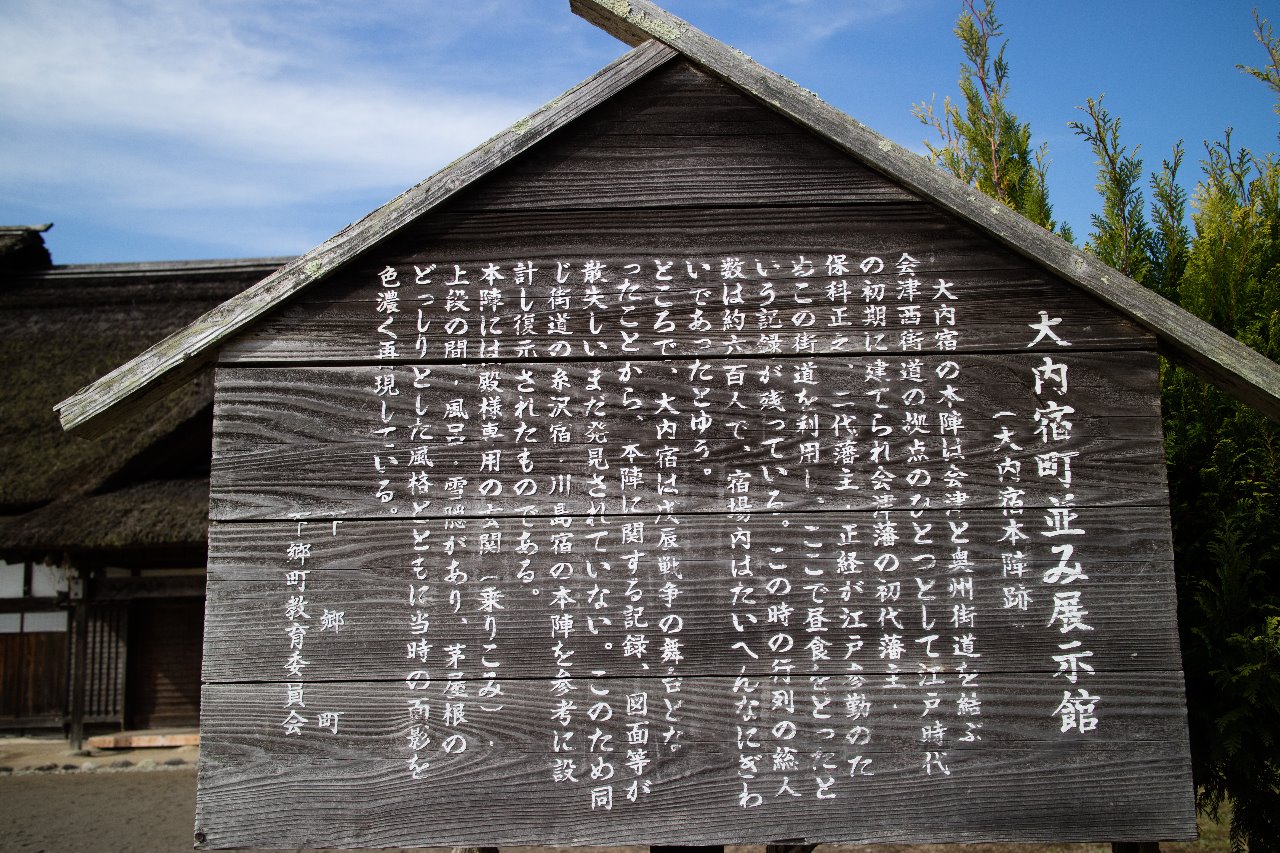 大内宿町並み展示館
(大内宿本陣跡
大内宿の本陣は会津と奥州街道を結ぶ
会津西街道の拠点のひとつとして江戸時代
の初期に建てられ会津藩の初代藩主.
保科正之、二代藩主.正経が江戸参勤のた
めこの街道を利用し、ここで昼食をとったと
いう記録が残っている。この時の行列の総人
数は約六百人で、宿場内はたいへんなにぎわ
いであったとゆう。
ところで、大内宿は戊辰戦争の舞台とな
ったことから、本陣に関する記録、図面等が
散失しいまだ発見されていない。このため同
じ街道の糸沢宿.川島宿の本陣を参考に設
計し復示されたものである。
本陣には殿様専用の玄関(乗りこみ).
上段の間.風呂.雪隠があり、茅屋根の
どっしりとした風格とともに当時の面影を
色濃く再現している。
下郷町
下郷町教育委員会